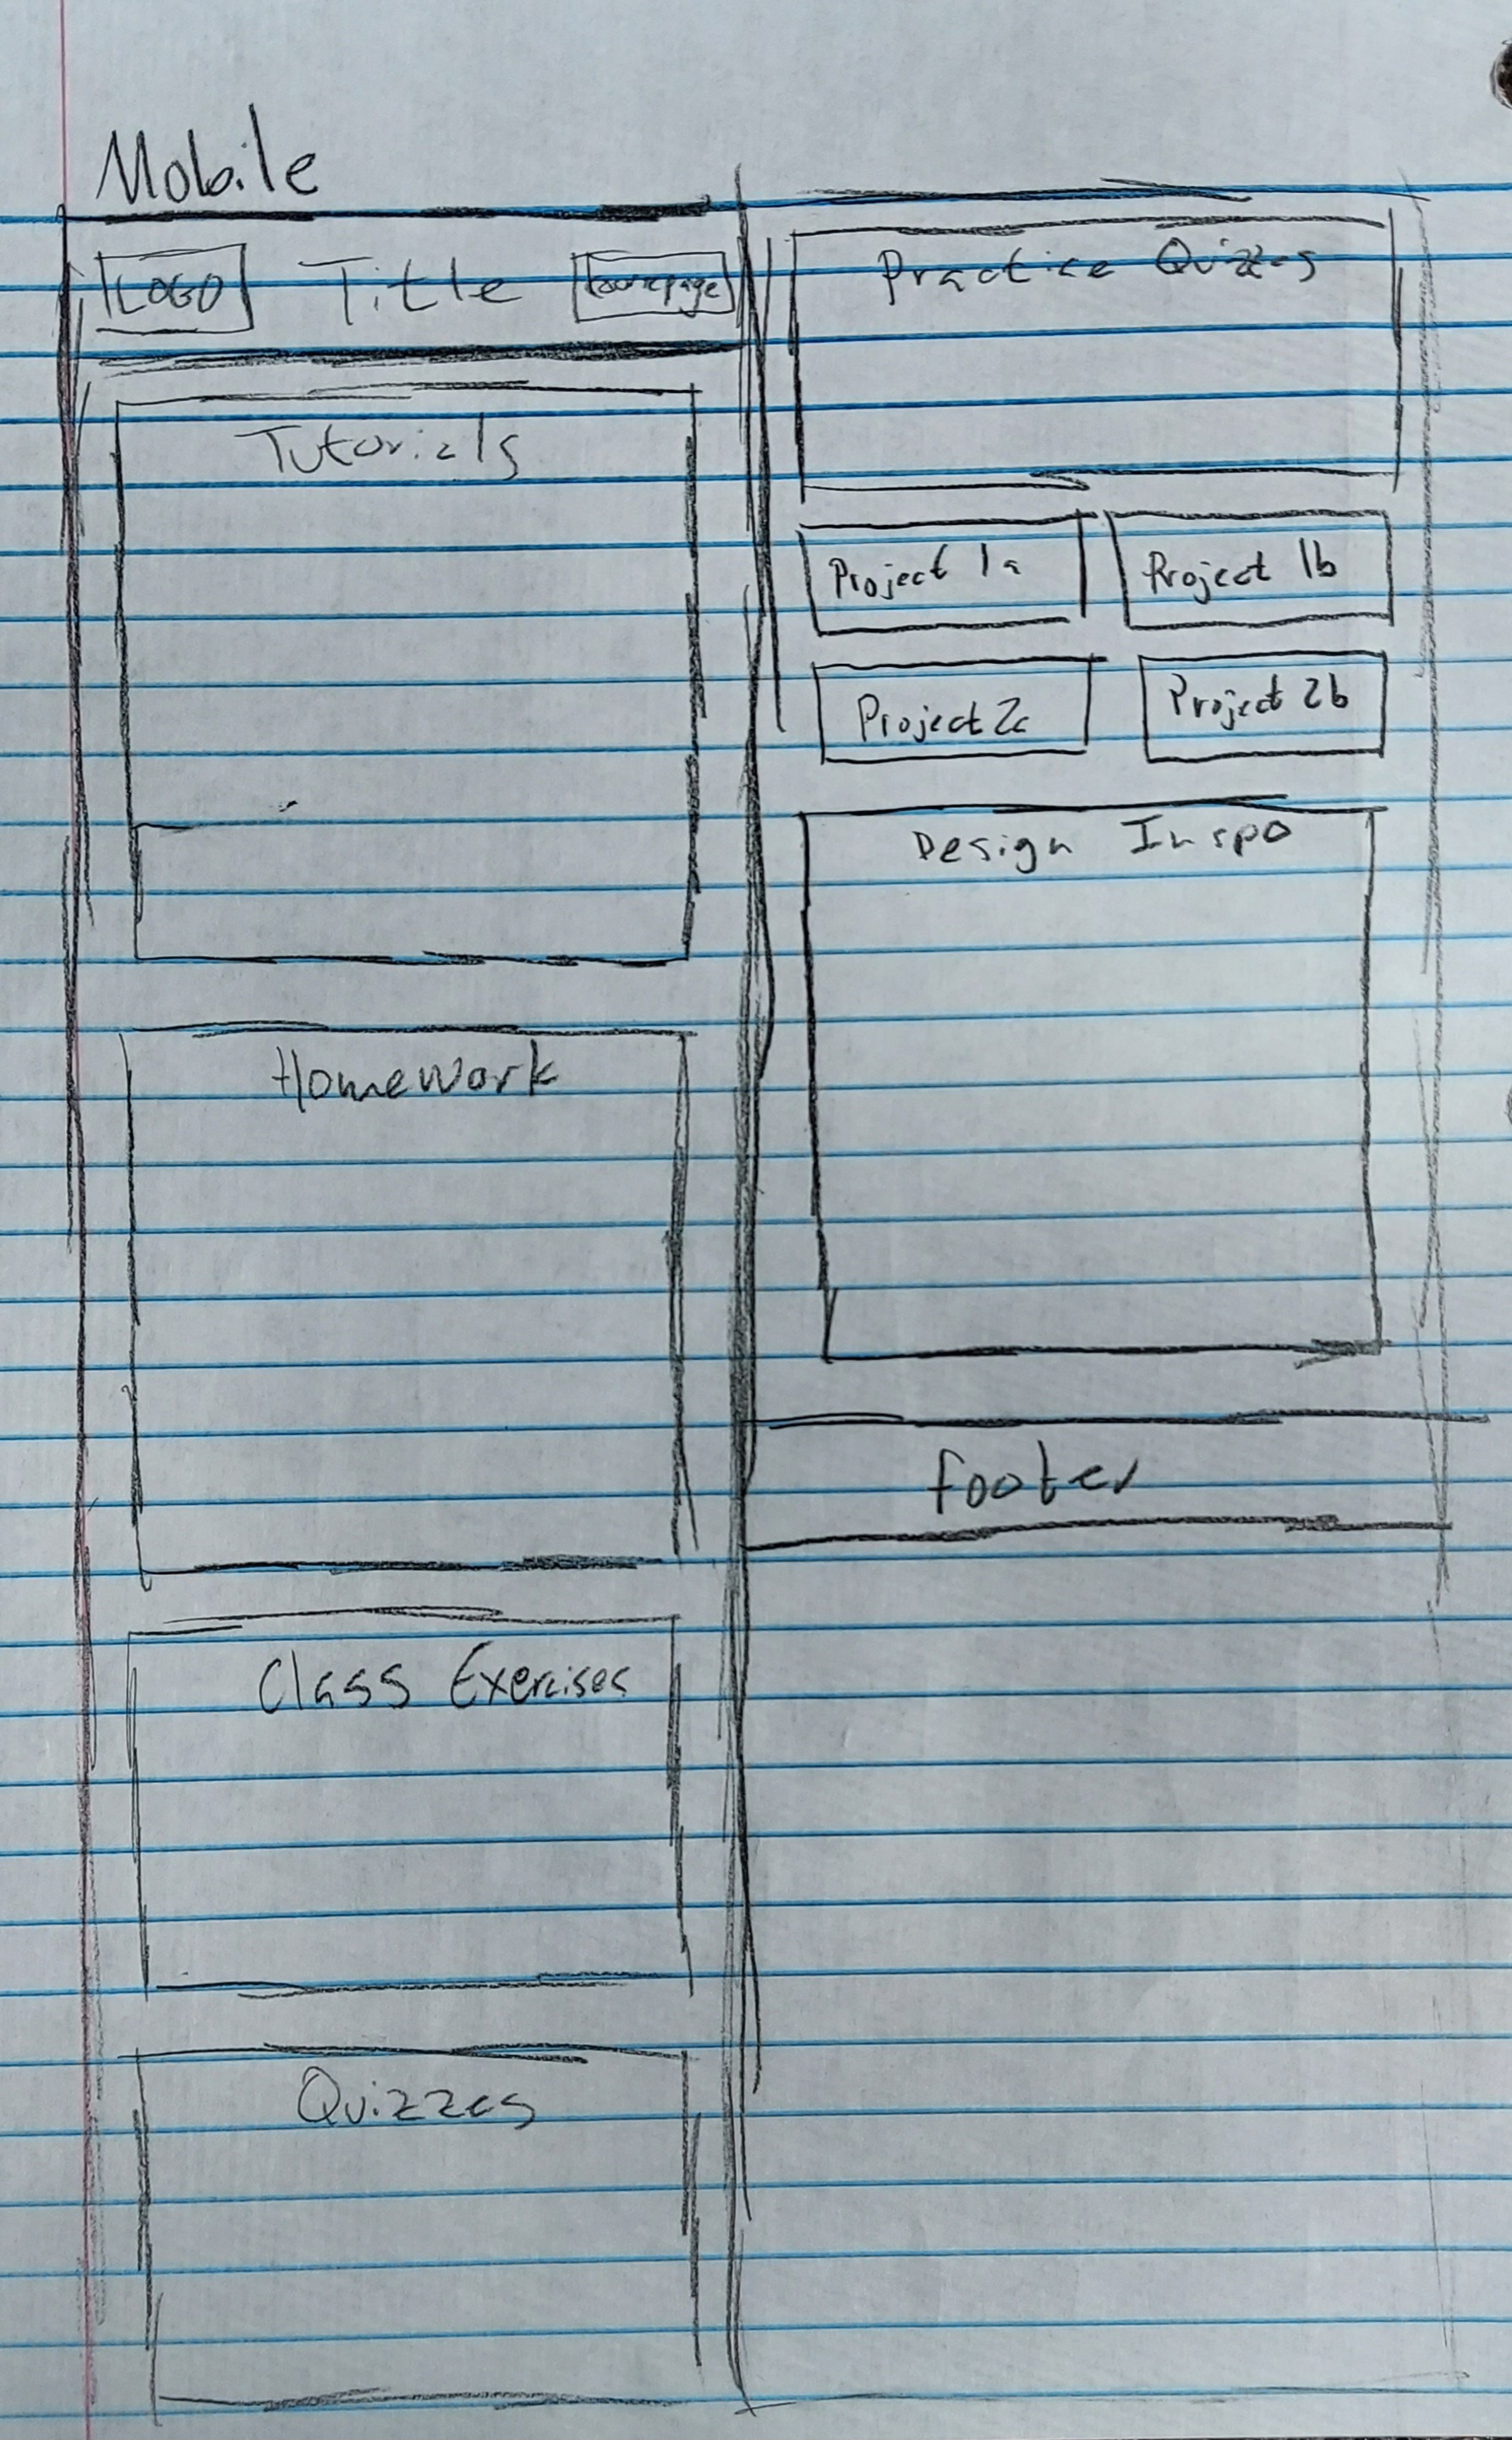 Mobile
LOGO Title homepage
Tutorials
Homework
Class Exercises
Quizzes
Practice Quizzes
Project 1a Project 1b
Project 2a Project 2b
Design Inspo
footer